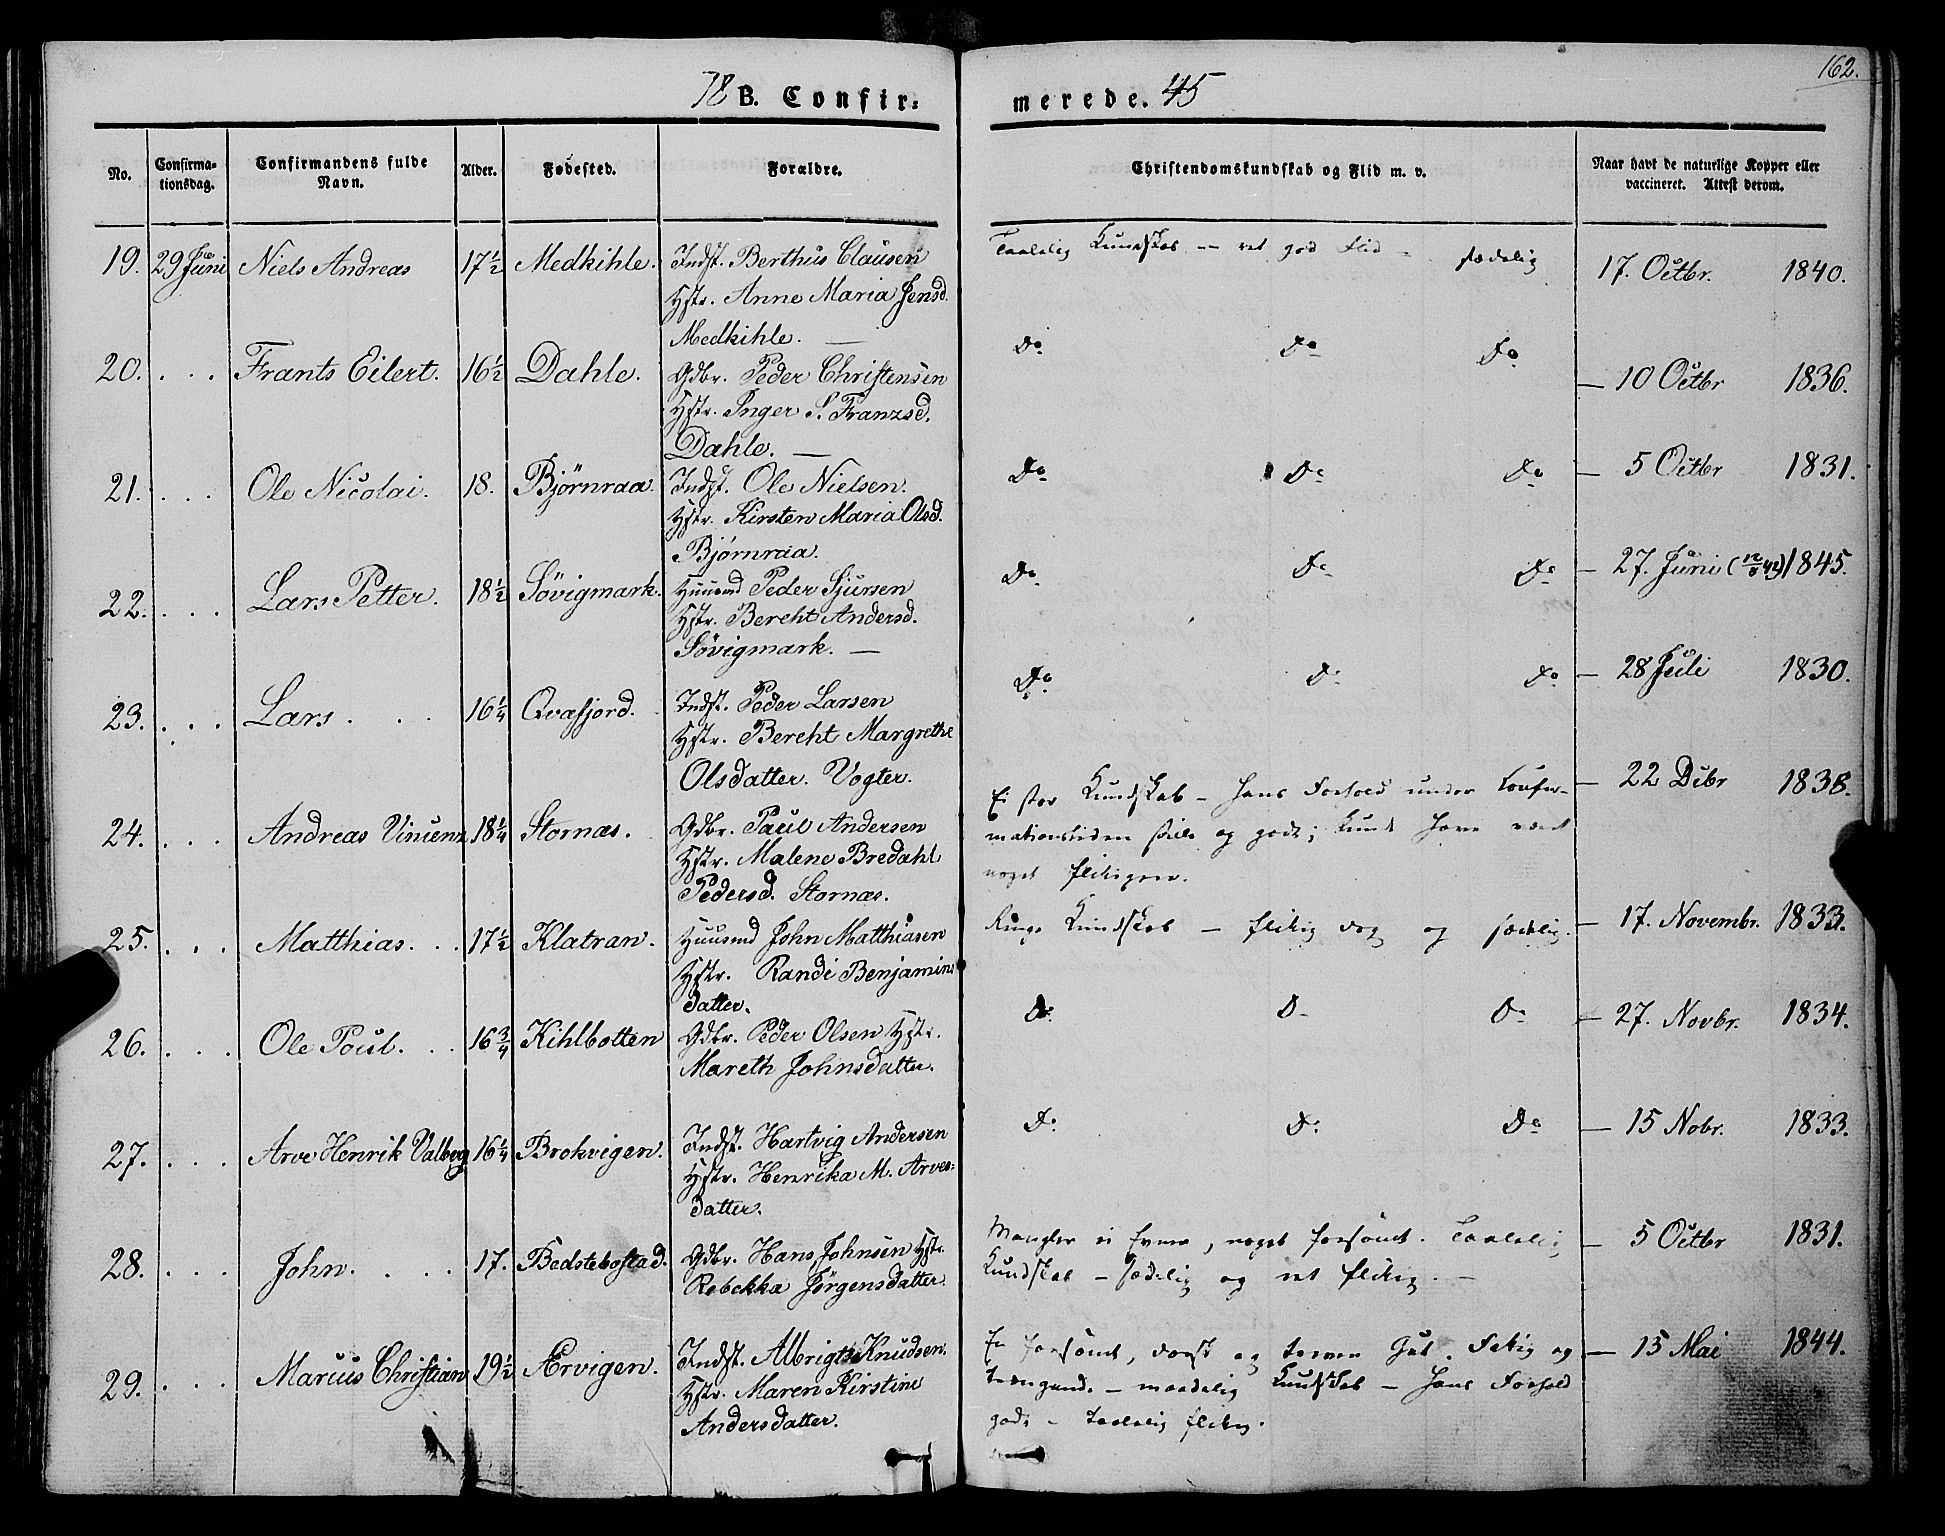 162.
18 B. Confir: merede. 45
No. Confirma-tionsdag. Confirmandens fulde Navn. Alder. Fødested. Forældre. Christendomskundskab og Flid m. v. Naar havt de naturlige Kopper eller vaccineret. Attest derom.
19. 29 Juni Niels Andreas 17 1/2 Medkihle. Indst. Berthus Clausen Taalelig Kundskab — ret god Flid — sædelig 17. Octbr. 1840.
Hstr. Anne Maria Jensd.
Medkihle. —
20. . . . Frants Eilert. 16 1/2 Dahle. Gdbr. Peder Christensen Do Do Do — 10 Octbr 1836.
Hstr. Inger S. Franzsd.
Dahle. —
21. . . . Ole Nicolai. 18. Bjørnraa. Indst. Ole Nielsen. Do Do Do — 5 Octbr 1831.
Hstr. Kirsten Maria Olsd.
Bjørnraa.
22. . . . Lars Petter. 18 1/2 Søvigmark. Huusmd Peder Sjursen Do Do Do — 27. Juni 1845.
Hstr. Bereht Andersd.
Søvigmark. —
23. . . . Lars . . . 16 1/4 Qvæfjord. Indst. Peder Larsen Do Do Do — 28 Juli 1830.
Hstr. Bereht Margrethe
Olsdatter. Vogter.
24. . . . Andreas Vincenz 18 1/4 Stornæs. Gdbr. Paul Andersen Ei stor Kundskab — hans Forhold under Confir- — 22 Dcbr 1838.
Hstr. Malene Bredahl mationstiden stille og godt; kunde have været
Pedersd. Stornæs. noget flittigere.
25. . . . Matthias. . . 17 1/2 Klatran. Huusmd John Matthiasen Ringe Kundskab — flittig dog og sædelig. — 17. Novembr. 1833.
Hstr. Randi Benjamins
datter.
26. . . . Ole Poul. . . 16 3/4 Kihlbotten Gdbr. Peder Olsen Hstr. Do Do Do — 27. Novbr. 1834.
Mareth Johnsdatter.
27. . . . Arve Henrik Valberg 16 1/4 Brokvigen. Indst. Hartvig Andersen Do Do Do — 15 Nobr. 1833.
Hstr. Henrika M. Arves-
datter.
28. . . . John. . . . 17. Bedstebostad. Gdbr. Hans Johnsen Hstr. Mangler ei Evner, noget forsømt. Taalelig — 5 Octbr 1831.
Rebekka Jørgensdatter. Kundskab — sædelig og ret flittig. —
29. . . . Marcus Christian 19 1/2 Ærvigen. Indst. Albrigt Knudsen. En forsømt, og Gut. og — 15 Mai 1844.
Hstr. Maren Kirstine trængende — maadelig Kundskab — hans Forhold
Andersdatter. godt — taalelig flittig.